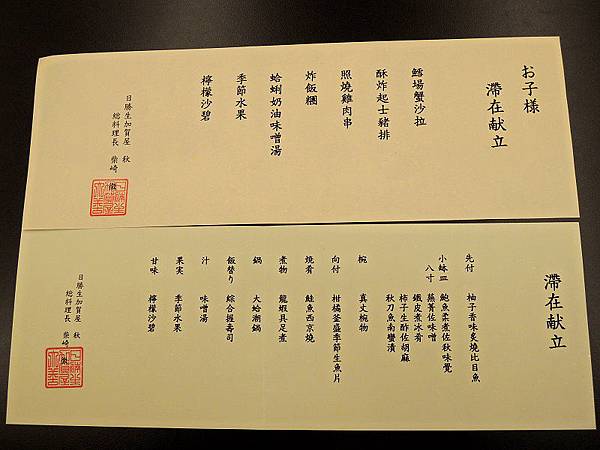 お子様
滯在献立
鱈場蟹沙拉
酥炸起士豬排
照燒雞肉串
炸飯糰
蛤蜊奶油味噌湯
季節水果
檸檬沙碧
日勝生加賀屋 秋
総料理長 柴崎 徹
滯在献立
先付 柚子香味炙燒比目魚
小缽皿 鮑魚柔煮佐秋味覺
八寸 蕪菁佐味噌
蝦皮煮冰肴
柿子生酢佐胡麻
秋刀魚南蠻漬
椀 真丈椀物
向付 柑橘釜盛季節生魚片
燒肴 鮭魚西京燒
煮物 龍蝦具足煮
鍋 大蛤潮鍋
飯替り 綜合握壽司
汁 味噌湯
果実 季節水果
甘味 檸檬沙碧
日勝生加賀屋 秋
総料理長 柴崎 徹